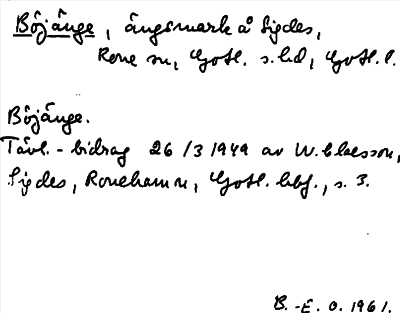 Böjänge, ängsmark å Sigdes,
Rone sn, Gotl. s. hd, Gotl. l.
Böjänge.
Tävl.-bidrag 26/3 1949 av W. Claesson,
Sigdes, Ronehamn, Gotl. hbf., s. 3.
B.-E. O. 1961.